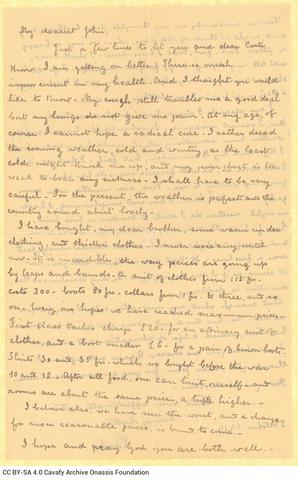 My dearest John,
Just a few lines to let you and dear Costi
Know I am getting on better. There is much
improvement in my health. And I thought you would
like to Know. My cough still troubles me a good deal
but my lungs do not give me pain. At my age, of
course I cannot hope a radical cure. I rather dread
the coming weather, cold and wintry, as the least
cold might Knock me up, and my poor chest is too
weak to bear any sickness. I shall have to be very
careful. For the present, the weather is perfect and the
country round about lovely.
I have bought, my dear brother, some warm under
clothing, and thicker clothes. I never wore any until
now. It is incredible, the way prices are going up
by leaps and bounds. A suit of clothes from
costs 300 - boots 80 frs. collars from 1 fr. to three, and so
on. Every one hopes we have reached maximum prices.
First class tailors charge 120. for an ordinary suit of
clothes, and a boot maker 16. for a pair of boots.
Shirts 30 and 35 frs. which we bought before the war
10 and 12. After all food, one can limit oneself and
rooms are about the same price, a trifle higher.
I believe also, we have seen the worst, and a change
for more reasonable prices, is bound to come!
I hope and pray God you are both well.
CC BY-SA 4.0 Cavafy Archive Onassis Foundation